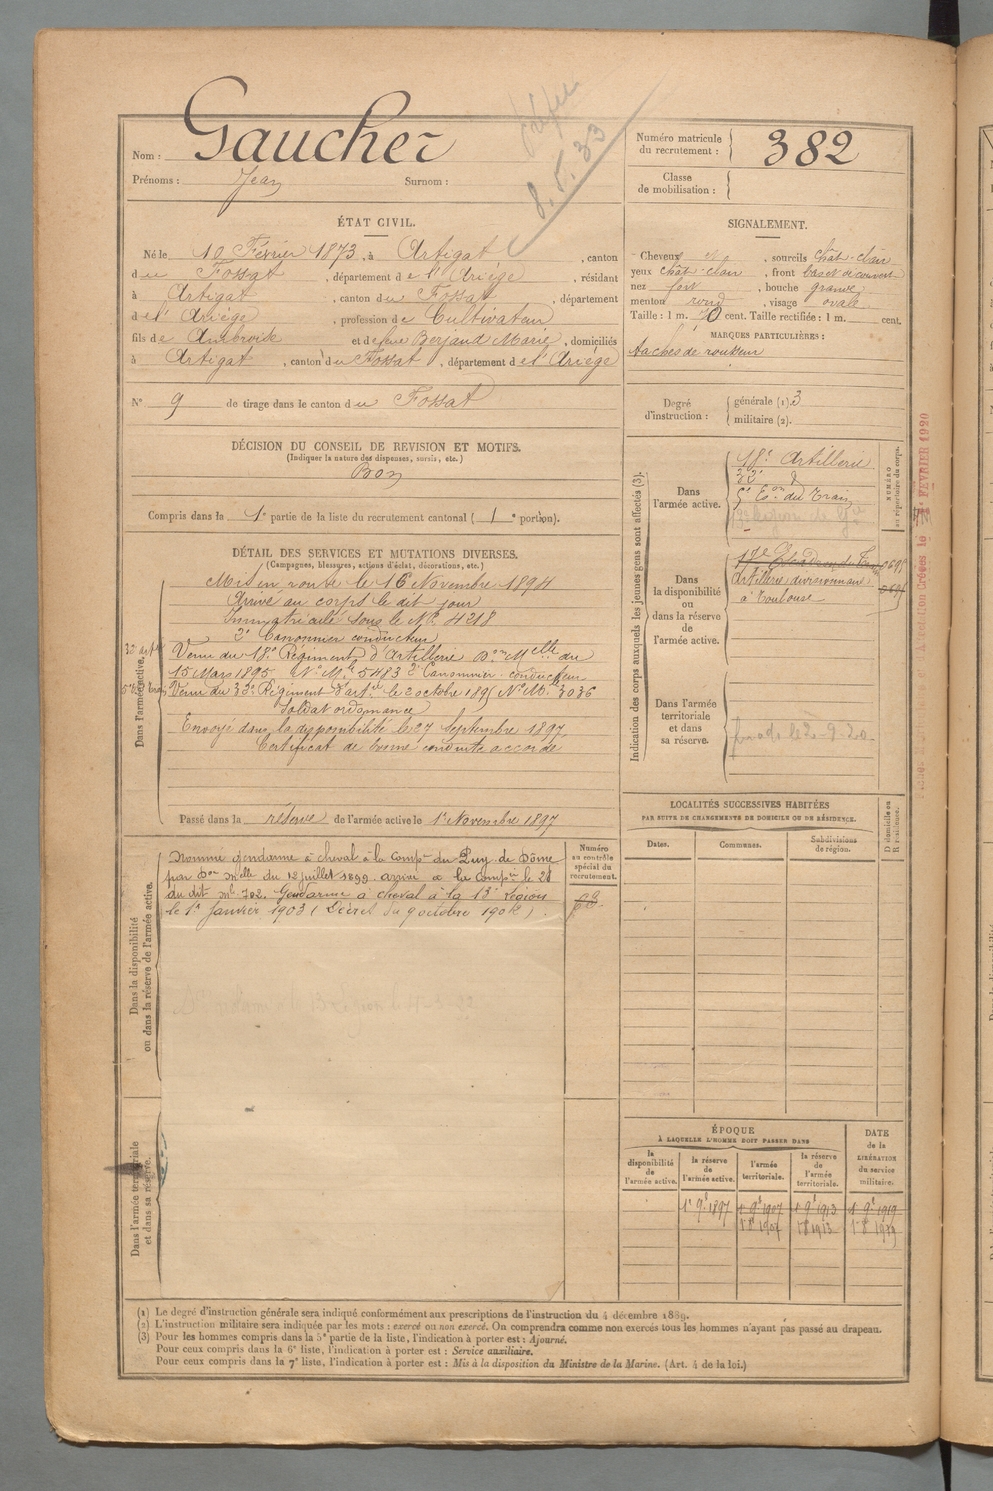 Gaucher
Nom :
Prénoms : Jean Surnom :
8. 5. 33
Numéro matricule du recrutement : 382
Classe de mobilisation :
ÉTAT CIVIL.
Né le 10 Février 1873, à Artigat, canton
du Fossat, département de l'Ariège, résidant
à Artigat, canton du Fossat, département
de l'Ariège, profession de Cultivateur
fils de Ambroise et de feue Berjaud Marie, domiciliés
à Artigat, canton du Fossat, département de l'Ariège
N° 9 de tirage dans le canton du Fossat
SIGNALEMENT.
Cheveux et, sourcils chât-clair
yeux chât-clair, front bas et découvert
nez fort, bouche grande
menton rond, visage ovale
Taille : 1 m. 70 cent. Taille rectifiée : 1 m. cent.
MARQUES PARTICULIÈRES :
taches de rousseur
Degré d'instruction : générale (1). 3
militaire (2).
DÉCISION DU CONSEIL DE REVISION ET MOTIFS.
(Indiquer la nature des dispenses, sursis, etc.)
Bon
Compris dans la 1e partie de la liste du recrutement cantonal ( 1 e portion).
DÉTAIL DES SERVICES ET MUTATIONS DIVERSES.
(Campagnes, blessures, actions d'éclat, décorations, etc.)
Dans l'armée active.
Mis en route le 16 Novembre 1894
Arrivé au corps le dit jour
Immatriculé sous le N° 4218
2e Canonnier conducteur
Venu du 18e Régiment d'Artillerie Don Melle du
15 Mars 1895 No Mle 5483 2e Canonnier conducteur
Venu du 33e Régiment d'artie le 2 octobre 1895 No Mle 3036
soldat ordonnance
Envoyé dans la disponibilité le 27 Septembre 1897
Certificat de bonne conduite accordé
Passé dans la réserve de l'armée active le 1er Novembre 1897
Indication des corps auxquels les jeunes gens sont affectés (3).
NUMÉRO au répertoire du corps.
Dans l'armée active.
18e Artillerie
d°
5e Eon du Train
Dans la disponibilité ou dans la réserve de l'armée active.
17e Escadron du Train
Artillerie divisionnaire
à Toulouse
Dans l'armée territoriale et dans sa réserve.
le 2-9-20
FÉVRIER 1920
LOCALITÉS SUCCESSIVES HABITÉES
PAR SUITE DE CHANGEMENTS DE DOMICILE OU DE RÉSIDENCE.
Dates. Communes. Subdivisions de région. D domicile ou R résidence.
Dans la disponibilité ou dans la réserve de l'armée active.
Nommé gendarme à cheval à la Compie du Puy de Dôme
par Don Melle du 12 juillet 1899 arrivé à la compie le 28
du dit mle 702. Gendarme à cheval à la 13e légion
le 1er Janvier 1903 (Décret du 9 octobre 1902)
Numéro au contrôle spécial du recrutement.
Dans l'armée territoriale et dans sa réserve.
ÉPOQUE
À LAQUELLE L'HOMME DOIT PASSER DANS
la disponibilité de l'armée active. la réserve de l'armée active. l'armée territoriale. la réserve de l'armée territoriale.
DATE de la LIBÉRATION du service militaire.
1er 9e 1897 1er 9e 1907 1er 9e 1913 1er 9e 1919
1er 8e 1907 1er 8e 1913 1er 8e 1919
(1) Le degré d'instruction générale sera indiqué conformément aux prescriptions de l'instruction du 4 décembre 1889.
(2) L'instruction militaire sera indiquée par les mots : exercé ou non exercé. On comprendra comme non exercés tous les hommes n'ayant pas passé au drapeau.
(3) Pour les hommes compris dans la 5e partie de la liste, l'indication à porter est : Ajourné.
Pour ceux compris dans la 6e liste, l'indication à porter est : Service auxiliaire.
Pour ceux compris dans la 7e liste, l'indication à porter est : Mis à la disposition du Ministre de la Marine. (Art. 4 de la loi.)